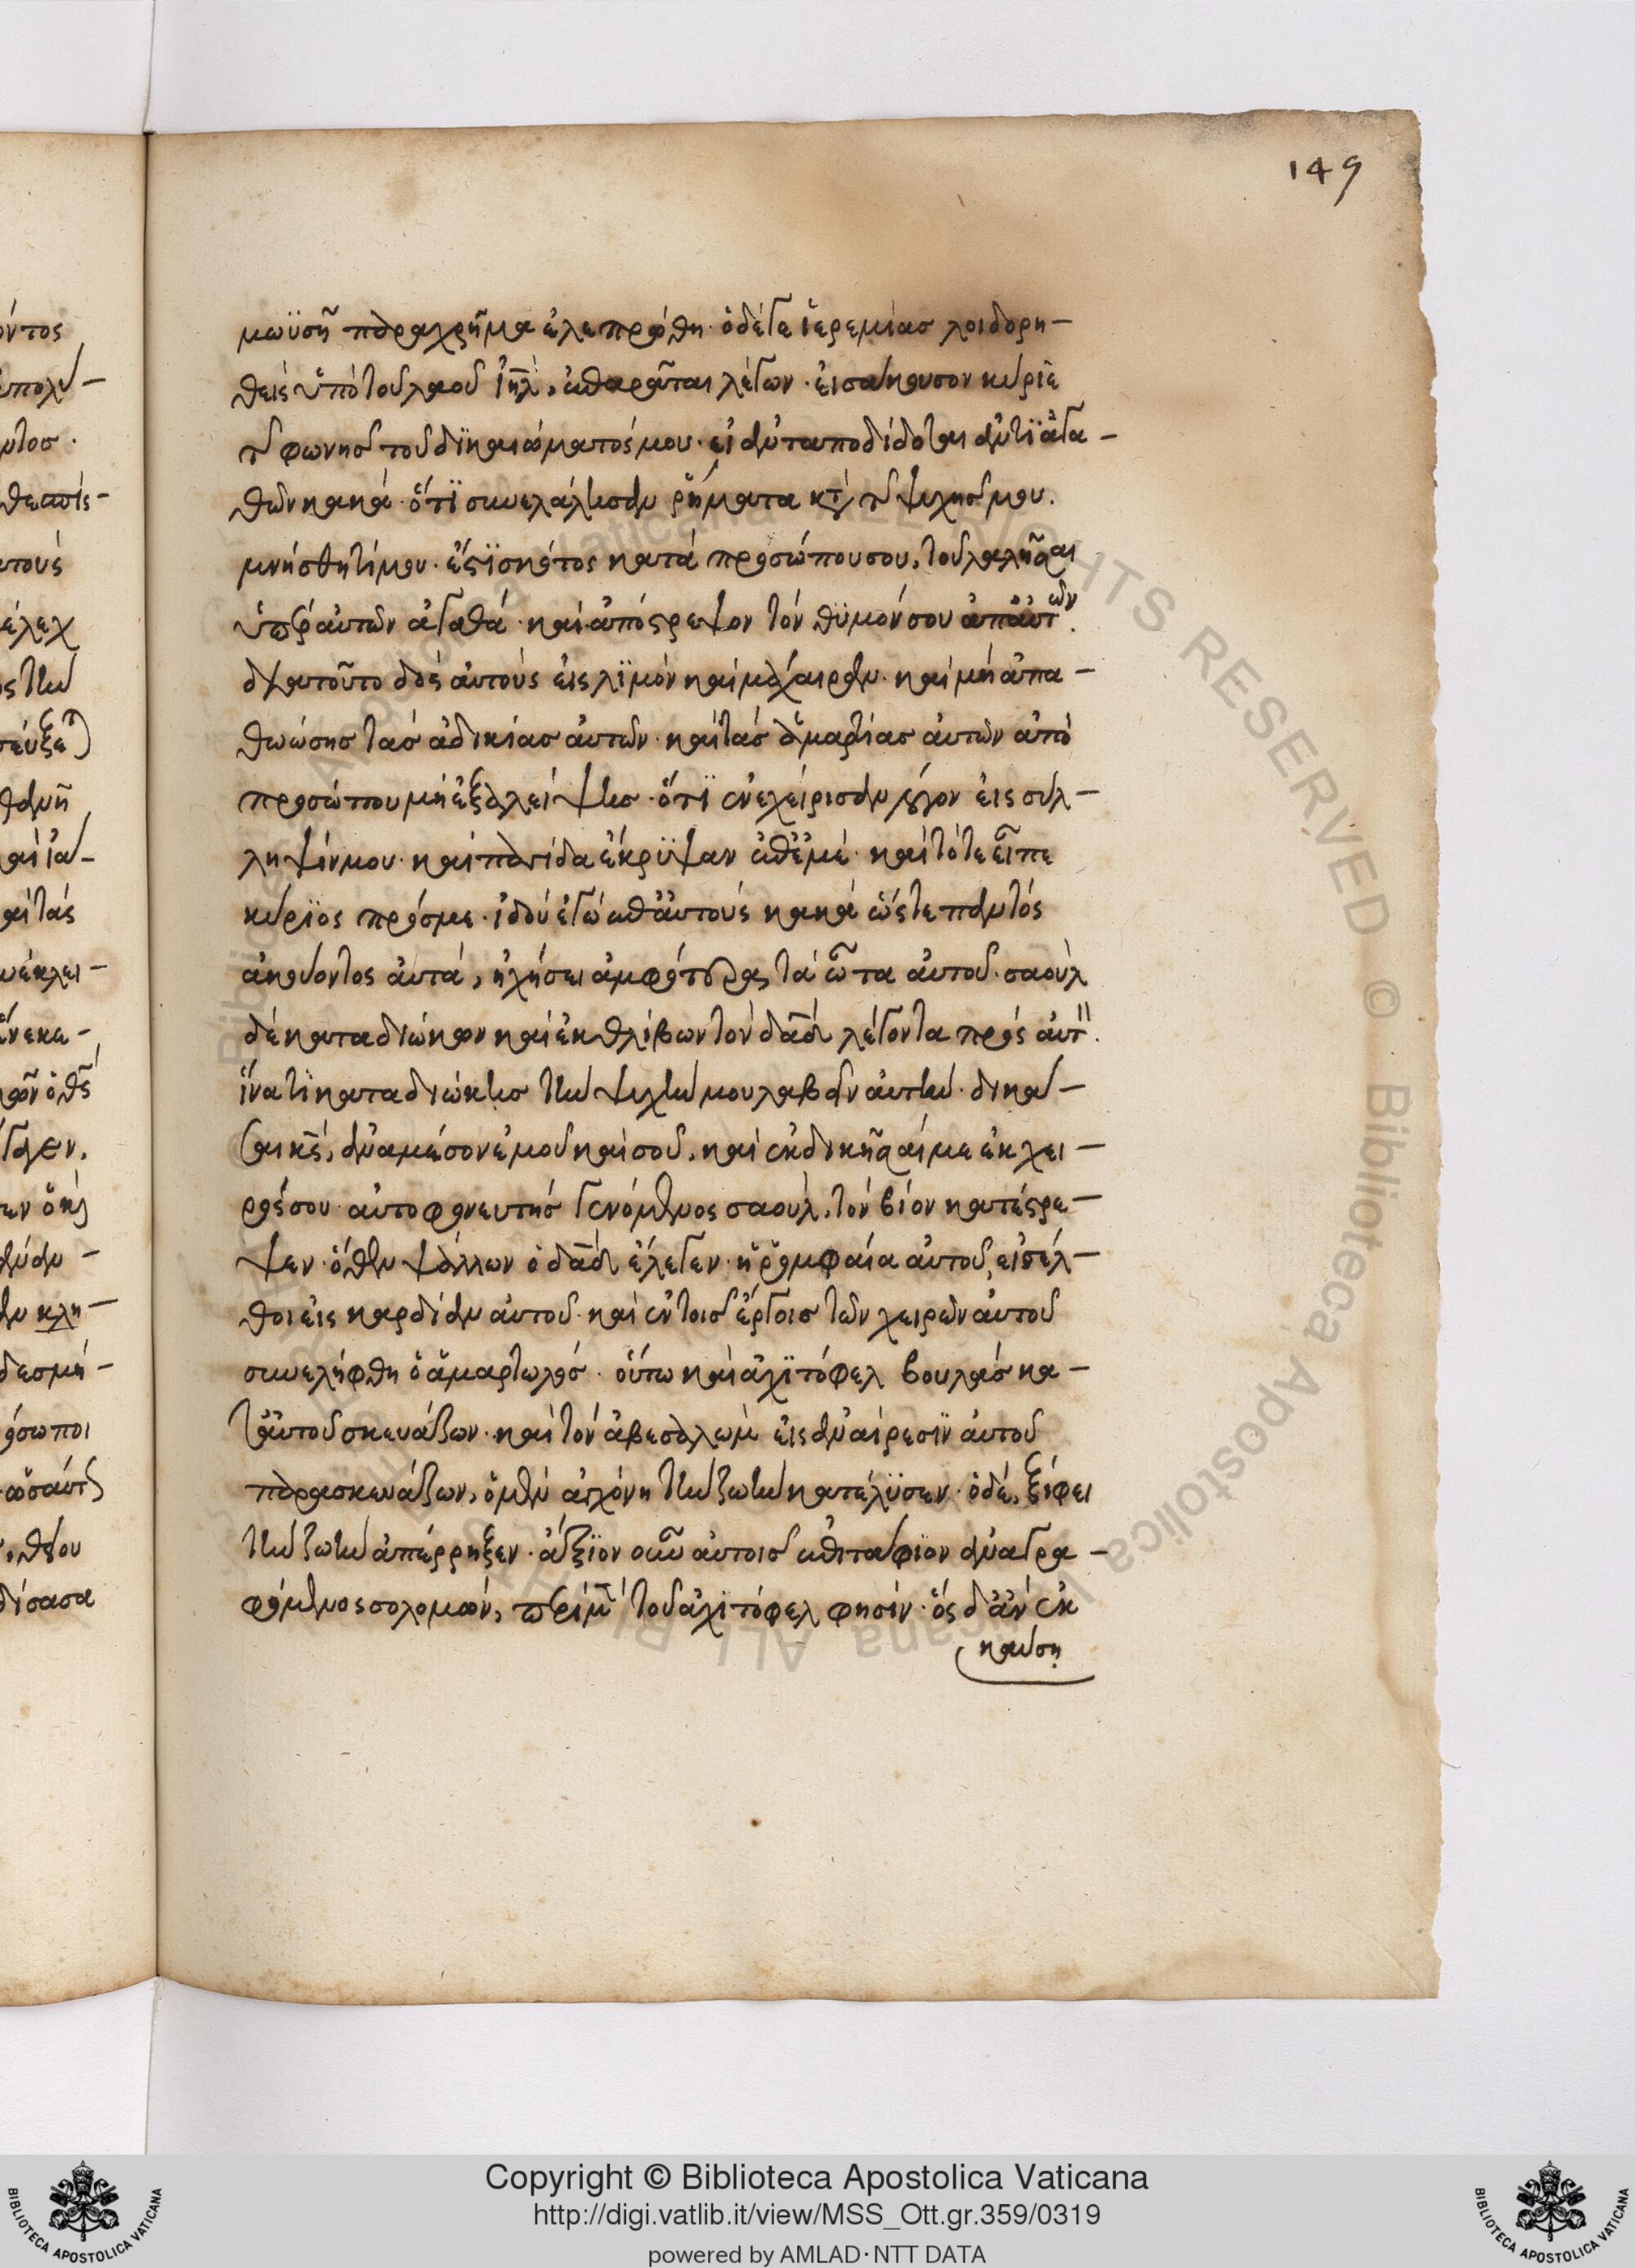 149
μωϋσῆ παραχρῆμα ἐλεπρώθη· ὁ δέ γε ἱερεμίας λοιδορη–
θεὶς ὑπὸ τοῦ λαοῦ ἰηλ, ἐπαρᾶται λέγων· εἰσάκουσον κύριε
τῆς φωνῆς τοῦ δικαιώματός μου· εἰ ἀνταποδίδοται ἀντὶ ἀγα–
θῶν κακά· ὅτι συνελάλησαν ῥήματα κατὰ τῆς ψυχῆς μου.
μνήσθητί μου ἑστηκότος κατὰ πρόσωπον σου, τοῦ λαλῆσαι
ὑπὲρ αὐτῶν ἀγαθά· καὶ ἀπόστρεψον τὸν θυμόν σου ἀπ' αὐτῶν.
διὰ τοῦτο δὸς αὐτοὺς εἰς λιμὸν καὶ μάχαιραν· καὶ μὴ ἀπα–
θωώσης τὰς ἀδικίας αὐτῶν· καὶ τὰς ἁμαρτίας αὐτῶν ἀπὸ
προσώπου μὴ ἐξαλείψης· ὅτι ἐνεχείρισαν λόγον εἰς σύλ–
ληψίν μου· καὶ παγίδα ἔκρυψαν ἐπ' ἐμέ· καὶ τότε εἶπε
κύριος πρός με· ἰδοὺ ἐγὼ ἐπ' αὐτοὺς κακά ὥστε παντὸς
ἀκούοντος αὐτά, ἠχήσει ἀμφότερα τὰ ὦτα αὐτοῦ· σαοὺλ
δὲ καταδιώκων καὶ ἐκθλίβων τὸν δαδ λέγοντα πρὸς αὐτόν.
ἵνα τί καταδιώκεις τὴν ψυχήν μου λαβεῖν αὐτήν· δικά–
σαι κς, ἀναμέσον ἐμοῦ καὶ σοῦ, καὶ ἐκδικῆσαί με ἐκ χει–
ρός σου· αὐτοφονευτὴς γενόμενος σαούλ, τὸν βίον κατέστρε–
ψεν· ὅθεν ψάλλων ὁ δαδ ἔλεγεν· ἡ ῥομφαία αὐτοῦ, εἰσέλ–
θοι εἰς καρδίαν αὐτοῦ· καὶ ἐν τοῖς ἔργοις τῶν χειρῶν αὐτοῦ
συνελήφθη ὁ ἁμαρτωλός· οὕτω καὶ ἀχιτόφελ βουλὰς κα–
τ' αὐτοῦ σκευάζων· καὶ τὸν ἀβεσαλὼμ εἰς ἀναίρεσιν αὐτοῦ
παρασκευάζων, ὁ μὲν ἀγχόνη τὴν ζωὴν κατέλυσεν· ὁ δέ, ξίφει
τὴν ζωὴν ἀπέρρηξεν· ἄξιον οὖν αὐτοῖς ἐπιτάφιον ἀναγρα–
φόμενος σολομών, περὶ μὲν τοῦ ἀχιτόφελ φησίν· ὃς δ' ἂν ἐκ
καύση
Copyright © Biblioteca Apostolica Vaticana
http://digi.vatlib.it/view/MSS_Ott.gr.359/0319
powered by AMLAD·NTT DATA